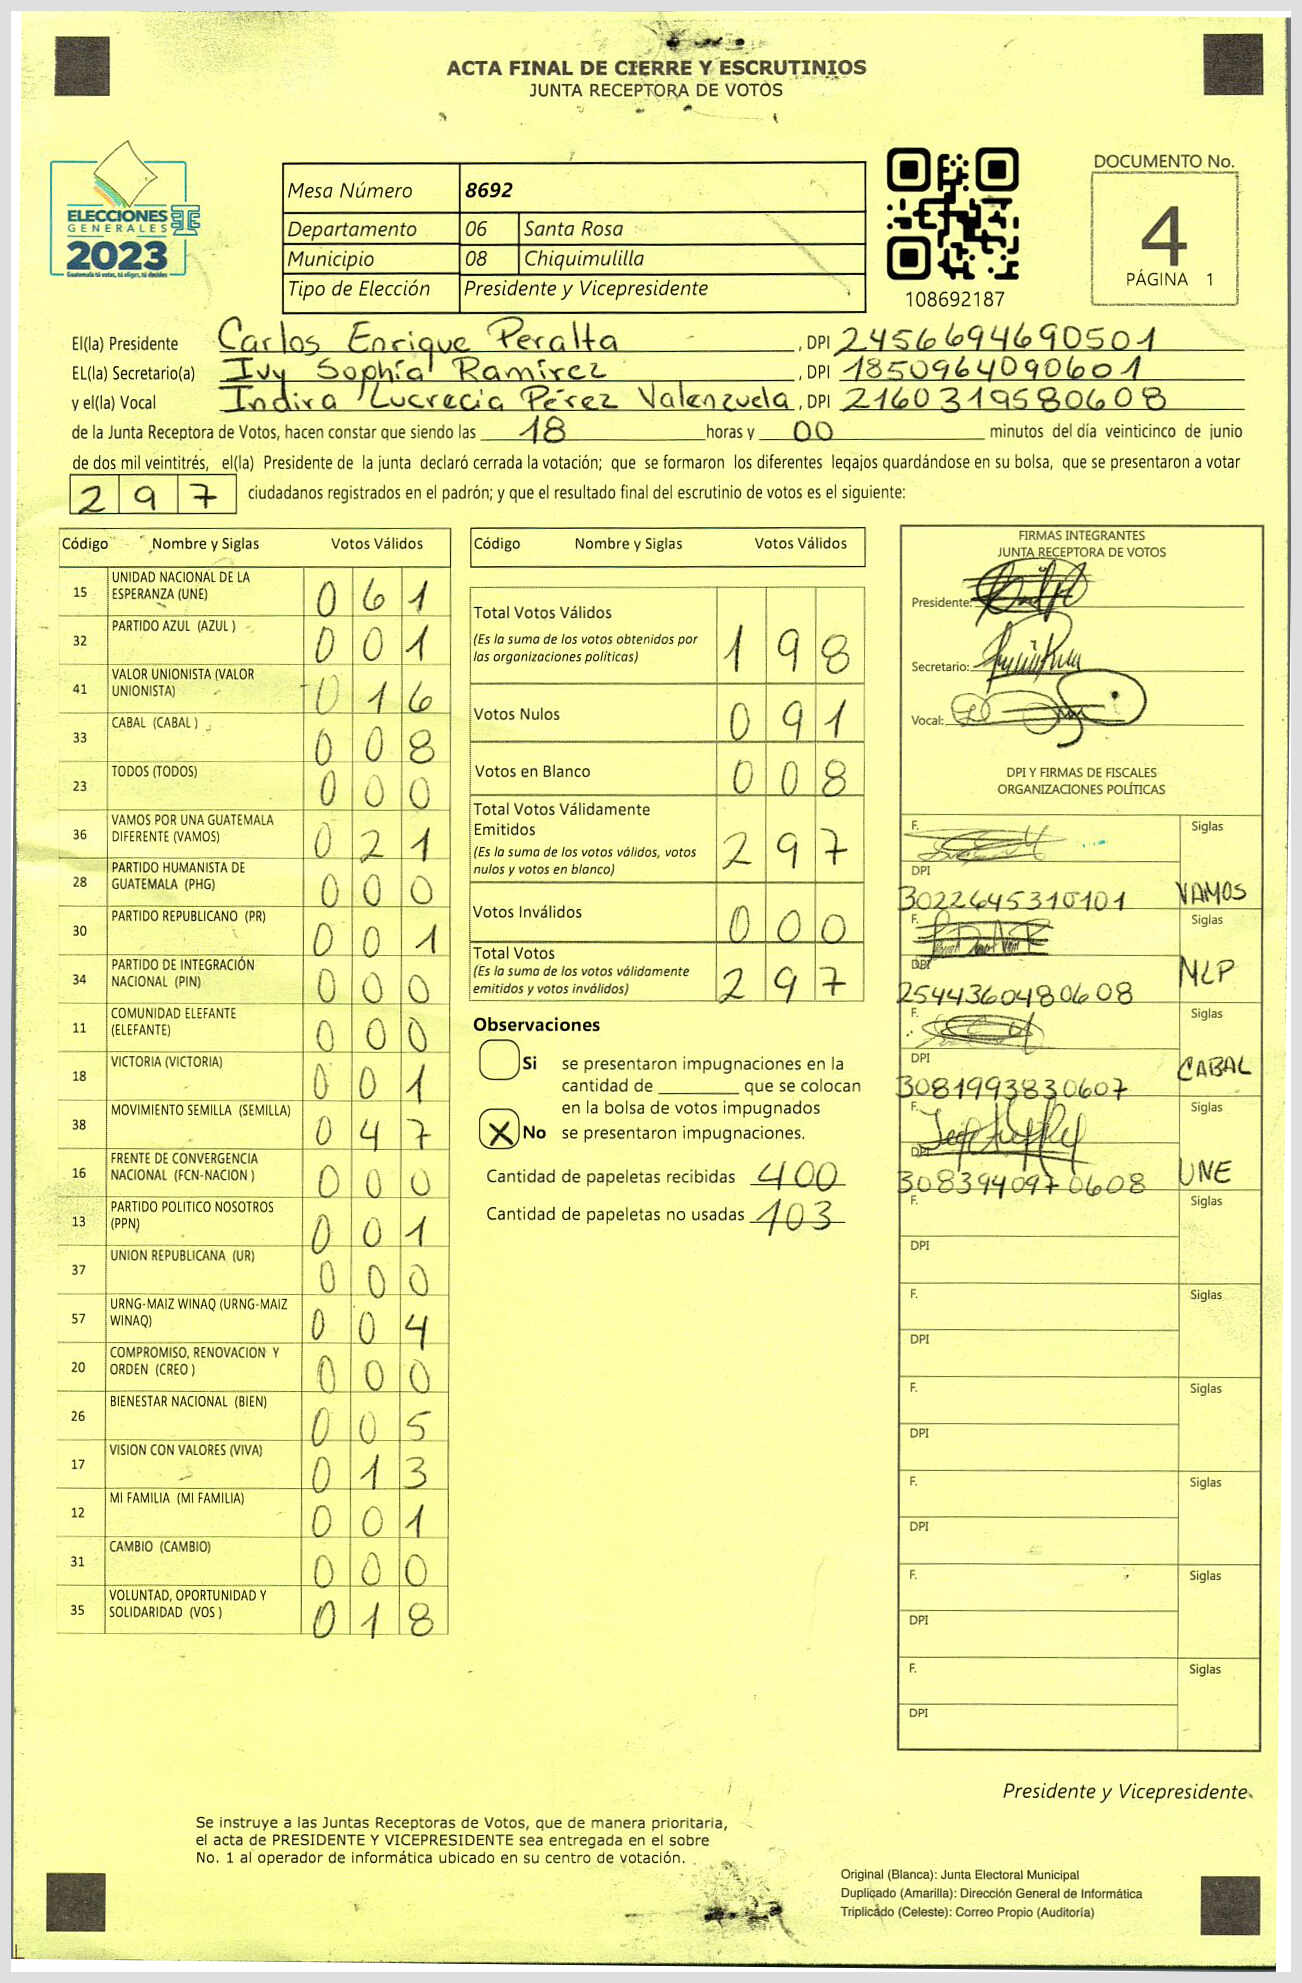 ACTA FINAL DE CIERRE Y ESCRUTINIOS
JUNTA RECEPTORA DE VOTOS
ELECCIONES
GENERALES
2023
Guatemala tú votas, tú eliges, tú decides
Mesa Número 8692
Departamento 06 Santa Rosa
Municipio 08 Chiquimulilla
Tipo de Elección Presidente y Vicepresidente
108692187
DOCUMENTO No.
4
PÁGINA 1
El(la) Presidente Carlos Enrique Peralta, DPI 2456694690501
EL(la) Secretario(a) Ivy Sophía Ramírez, DPI 1850964090601
y el(la) Vocal Indira Lucrecia Pérez Valenzuela, DPI 2160319580608
de la Junta Receptora de Votos, hacen constar que siendo las 18 horas y 00 minutos del día veinticinco de junio
de dos mil veintitrés, el(la) Presidente de la junta declaró cerrada la votación; que se formaron los diferentes legajos guardándose en su bolsa, que se presentaron a votar
297 ciudadanos registrados en el padrón; y que el resultado final del escrutinio de votos es el siguiente:
Código Nombre y Siglas Votos Válidos
15 UNIDAD NACIONAL DE LA ESPERANZA (UNE) 061
32 PARTIDO AZUL (AZUL ) 001
41 VALOR UNIONISTA (VALOR UNIONISTA) 016
33 CABAL (CABAL ) 008
23 TODOS (TODOS) 000
36 VAMOS POR UNA GUATEMALA DIFERENTE (VAMOS) 021
28 PARTIDO HUMANISTA DE GUATEMALA (PHG) 000
30 PARTIDO REPUBLICANO (PR) 001
34 PARTIDO DE INTEGRACIÓN NACIONAL (PIN) 000
11 COMUNIDAD ELEFANTE (ELEFANTE) 000
18 VICTORIA (VICTORIA) 001
38 MOVIMIENTO SEMILLA (SEMILLA) 047
16 FRENTE DE CONVERGENCIA NACIONAL (FCN-NACION ) 000
13 PARTIDO POLITICO NOSOTROS (PPN) 001
37 UNION REPUBLICANA (UR) 000
57 URNG-MAIZ WINAQ (URNG-MAIZ WINAQ) 004
20 COMPROMISO, RENOVACION Y ORDEN (CREO ) 000
26 BIENESTAR NACIONAL (BIEN) 005
17 VISION CON VALORES (VIVA) 013
12 MI FAMILIA (MI FAMILIA) 001
31 CAMBIO (CAMBIO) 000
35 VOLUNTAD, OPORTUNIDAD Y SOLIDARIDAD (VOS ) 018
Código Nombre y Siglas Votos Válidos
Total Votos Válidos 198
(Es la suma de los votos obtenidos por
las organizaciones políticas)
Votos Nulos 091
Votos en Blanco 008
Total Votos Válidamente
Emitidos 297
(Es la suma de los votos válidos, votos
nulos y votos en blanco)
Votos Inválidos 000
Total Votos 297
(Es la suma de los votos válidamente
emitidos y votos inválidos)
Observaciones
Si se presentaron impugnaciones en la
cantidad de ________ que se colocan
en la bolsa de votos impugnados
X No se presentaron impugnaciones.
Cantidad de papeletas recibidas 400
Cantidad de papeletas no usadas 103
FIRMAS INTEGRANTES
JUNTA RECEPTORA DE VOTOS
Presidente:
Secretario:
Vocal:
DPI Y FIRMAS DE FISCALES
ORGANIZACIONES POLÍTICAS
F. Siglas
DPI
3022645310101 VAMOS
F. Siglas
DPI
2544360480608 MLP
F. Siglas
DPI
3081993830607 CABAL
F. Siglas
DPI
3083940970608 UNE
F. Siglas
DPI
F. Siglas
DPI
F. Siglas
DPI
F. Siglas
DPI
F. Siglas
DPI
F. Siglas
DPI
Presidente y Vicepresidente
Se instruye a las Juntas Receptoras de Votos, que de manera prioritaria,
el acta de PRESIDENTE Y VICEPRESIDENTE sea entregada en el sobre
No. 1 al operador de informática ubicado en su centro de votación.
Original (Blanca): Junta Electoral Municipal
Duplicado (Amarilla): Dirección General de Informática
Triplicado (Celeste): Correo Propio (Auditoría)